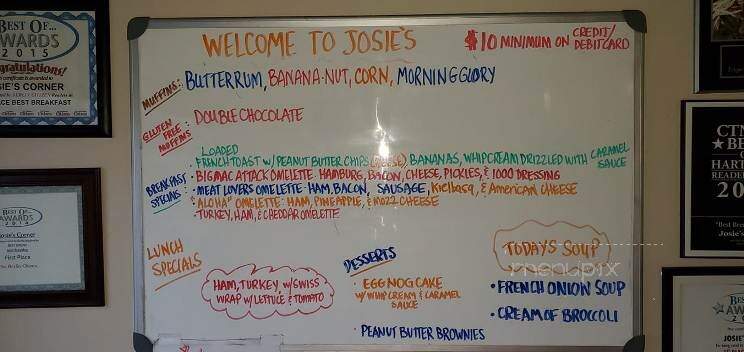 WELCOME TO JOSIE'S
$10 MINIMUM ON CREDIT/
DEBIT CARD
MUFFINS: BUTTER RUM, BANANA-NUT, CORN, MORNING GLORY
GLUTEN
FREE
MUFFINS
· DOUBLE CHOCOLATE
BREAKFAST
SPECIALS:
LOADED
· FRENCH TOAST W/ PEANUT BUTTER CHIPS BANANAS, WHIPCREAM DRIZZLED WITH CARAMEL
SAUCE
· BIG MAC ATTACK OMELETTE: HAMBURG, BACON, CHEESE, PICKLES, & 1000 DRESSING
· MEAT LOVERS OMELETTE: HAM, BACON, SAUSAGE, Kielbasa, & AMERICAN CHEESE
· "ALOHA" OMELETTE: HAM, PINEAPPLE, & MOZZ CHEESE
· TURKEY, HAM, & CHEDDAR OMELETTE
LUNCH
SPECIALS
HAM, TURKEY, W/ SWISS
WRAP W/ LETTUCE & TOMATO
DESSERTS
· EGG NOG CAKE
W/ WHIP CREAM & CARAMEL
SAUCE
· PEANUT BUTTER BROWNIES
TODAYS SOUP
menupix
· FRENCH ONION SOUP
· CREAM OF BROCCOLI
BEST OF...
AWARDS
2015
Congratulations!
JOSIE'S CORNER
BEST BREAKFAST
BEST OF
AWARDS
2013
Josie's Corner
First Place
CTN
BE
OF
HART
READER
20
"Best Bre
Josie's
BES
AW
2
JOSIE